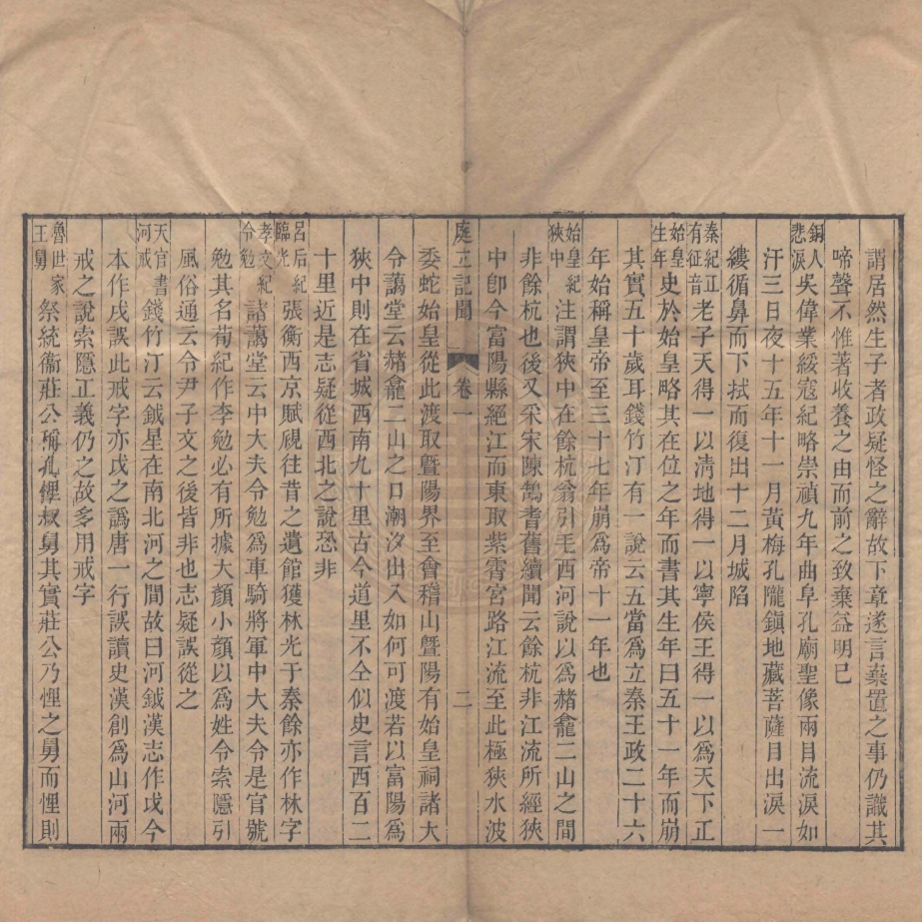 謂居然生子者政疑怪之辭故下章遂言棄置之事仍識其
啼聲不惟著收養之由而前之致棄益明已
銅人悲淚吳偉業綏寇紀略崇禎九年曲阜孔廟聖像兩目流淚如
汗三日夜十五年十一月黃梅孔隴鎮地藏菩薩目出淚一
縷循鼻而下拭而復出十二月城陷
秦紀正有征音老子天得一以清地得一以寧侯王得一以為天下正
始皇生年史於始皇略其在位之年而書其生年曰五十一年而崩
其實五十歲耳錢竹汀有一說云五當為立秦王政二十六
年始稱皇帝至三十七年崩為帝十一年也
始皇紀狹中注謂狹中在餘杭翁引毛西河說以為赭龕二山之間
非餘杭也後又采宋陳鵠耆舊續聞云餘杭非江流所經狹
中卽今富陽縣絕江而東取紫霄宮路江流至此極狹水波
庭立記聞 卷一 二
委蛇始皇從此渡取暨陽界至會稽山暨陽有始皇祠諸大
令藹堂云赭龕二山之口潮汐出入如何可渡若以富陽為
狹中則在省城西南九十里古今道里不仝似史言西百二
十里近是志疑從西北之說恐非
呂后紀臨光張衡西京賦視往昔之遺館獲林光于秦餘亦作林字
孝文紀令勉諸藹堂云中大夫令勉為車騎將軍中大夫令是官號
勉其名荀紀作李勉必有所據大顏小顏以為姓令索隱引
風俗通云令尹子文之後皆非也志疑誤從之
天官書河戒錢竹汀云鉞星在南北河之間故曰河鉞漢志作戉今
本作戌誤此戒字亦戉之譌唐一行誤讀史漢創為山河兩
戒之說索隱正義仍之故多用戒字
魯世家王舅祭統衞莊公稱孔悝叔舅其實莊公乃悝之舅而悝則